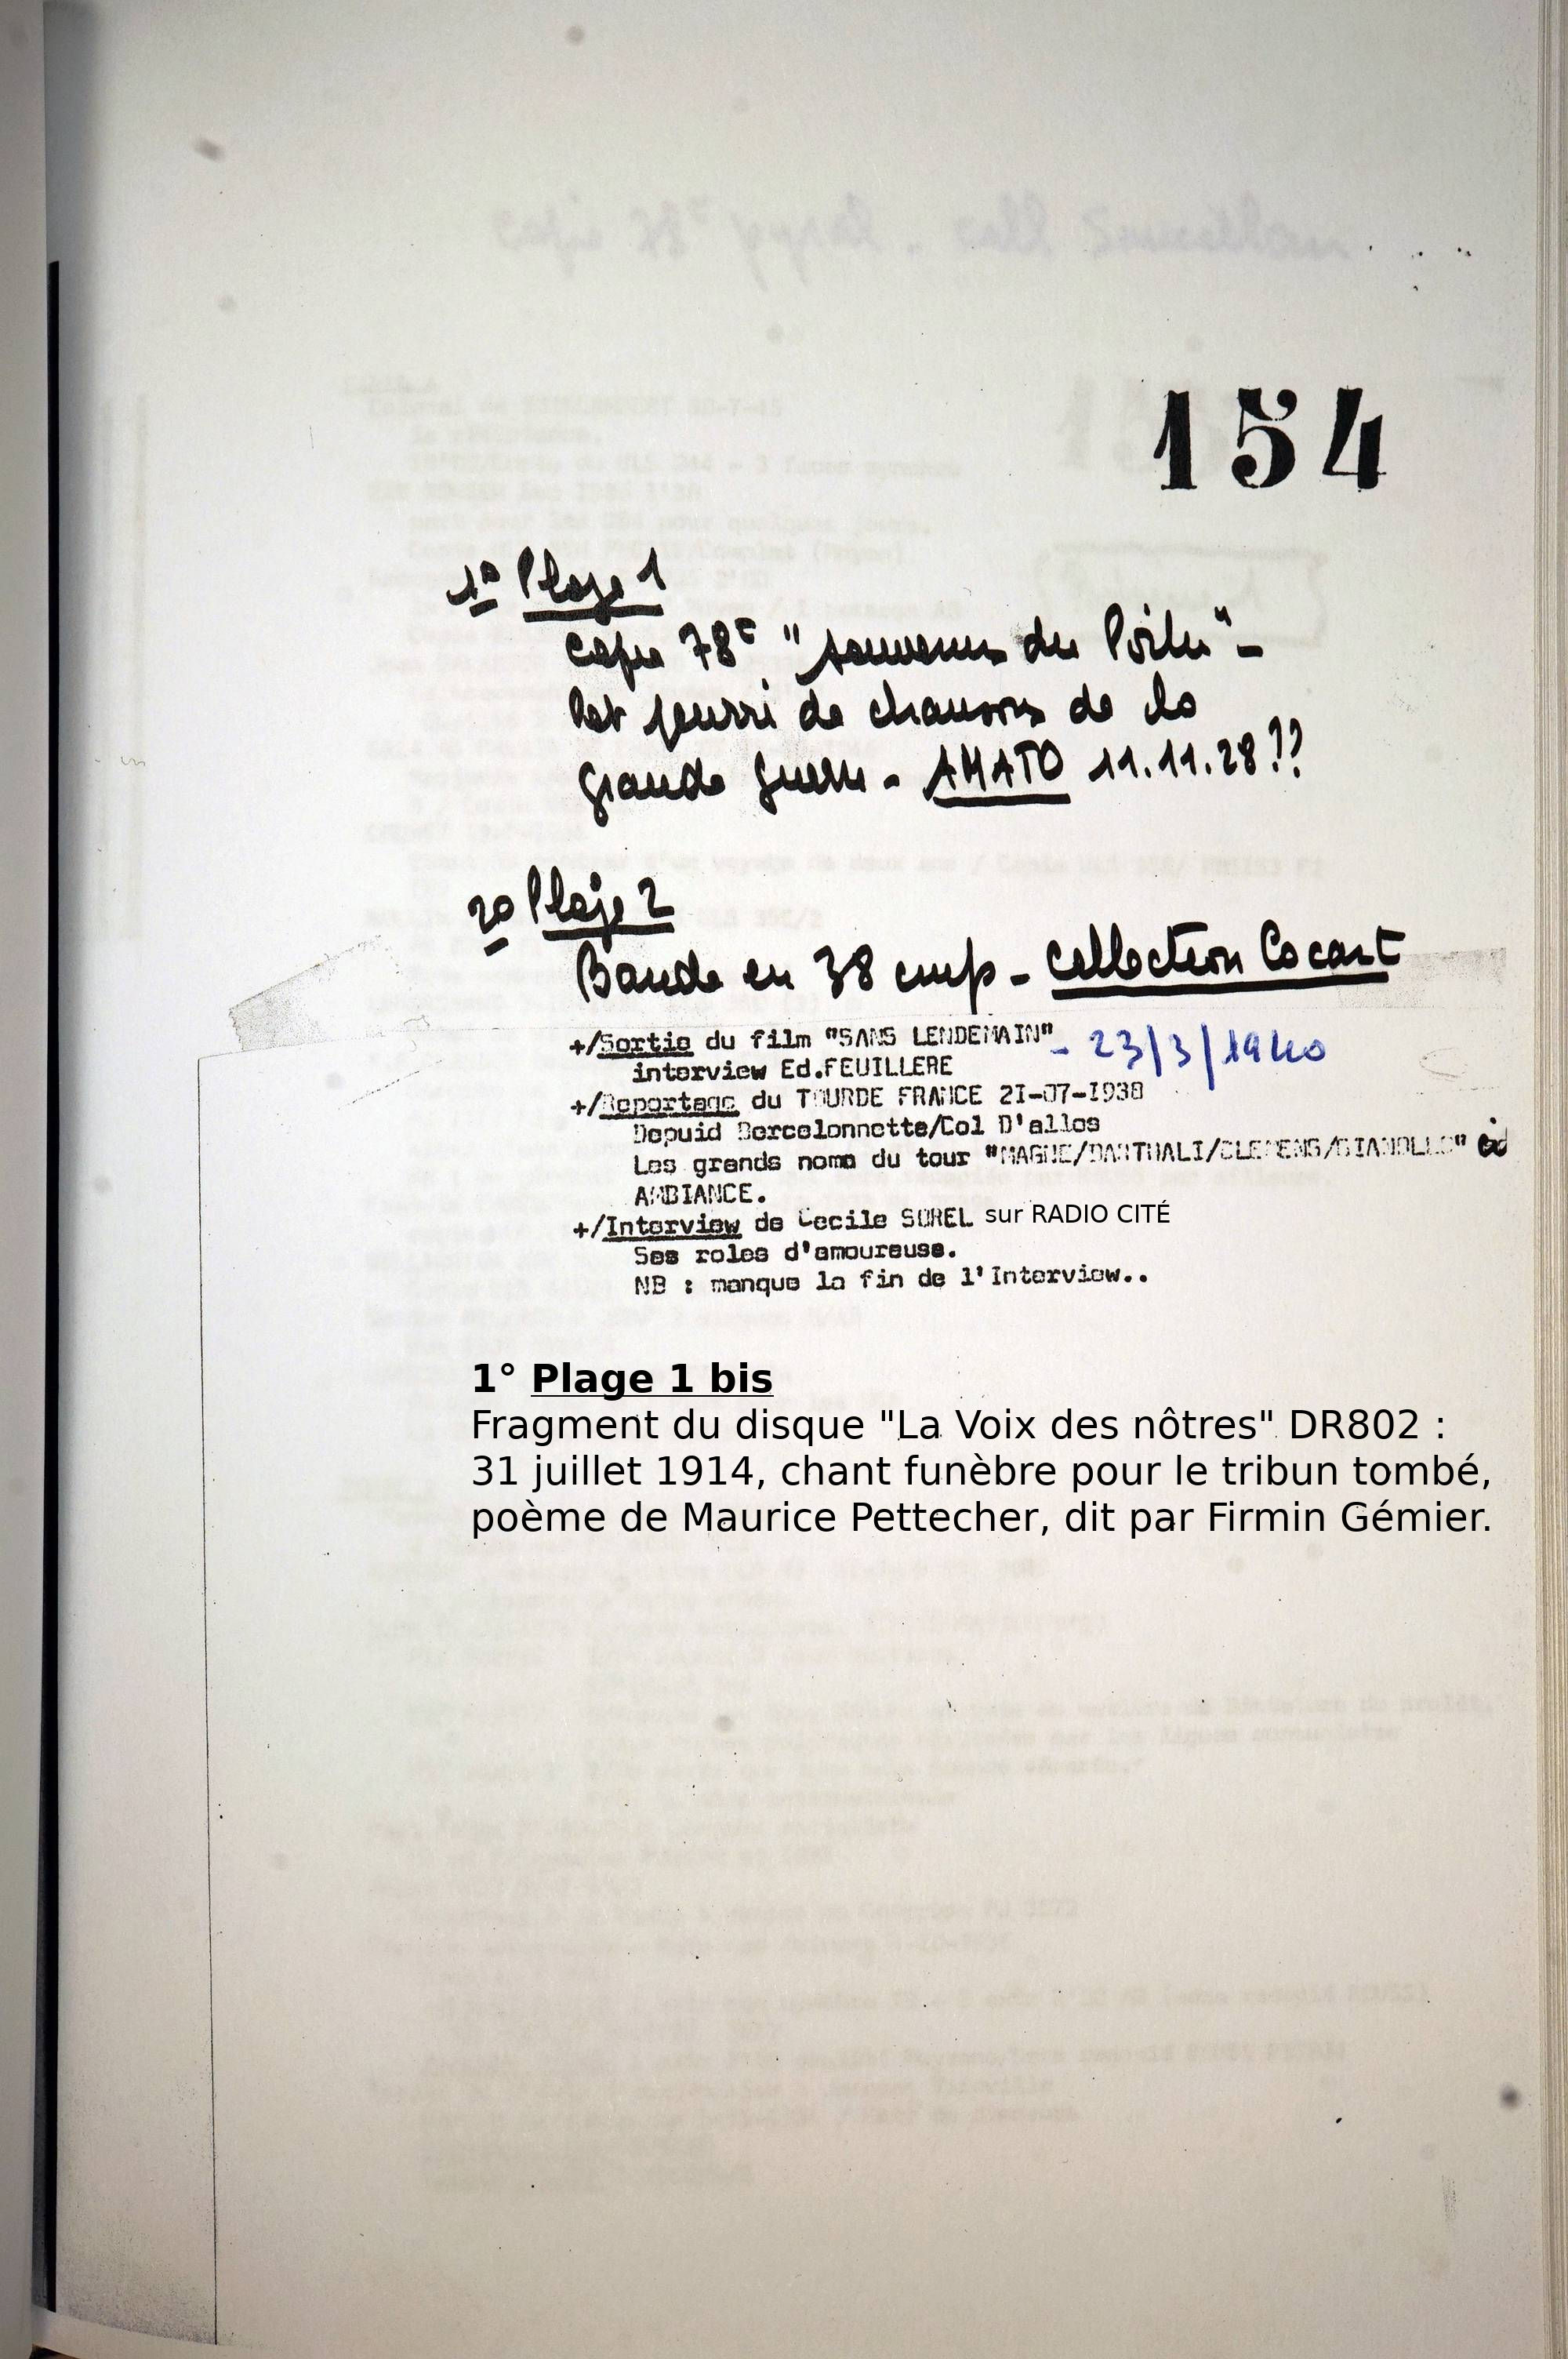 154
1° Plage 1
copie 78t "souvenirs du Poilu" -
Pot pourri de chansons de la
grande guerre - AMATO 11.11.28??
2° Plage 2
Bande en 38 cm/s - Collection Cocart
+/Sortie du film "SANS LENDEMAIN" - 23/3/1940
interview Ed.FEUILLERE
+/Reportage du TOURDE FRANCE 2I-07-I938
Depuid Barcelonnette/Col D'allos
Les grands noms du tour "MAGNE/BARTHALI/CLEMENS/GIANOLLO"
AMBIANCE.
+/Interview de Cecile SOREL sur RADIO CITÉ
Ses roles d'amoureuse.
NB : manque la fin de l'Interview..
1° Plage 1 bis
Fragment du disque "La Voix des nôtres" DR802 :
31 juillet 1914, chant funèbre pour le tribun tombé,
poème de Maurice Pettecher, dit par Firmin Gémier.